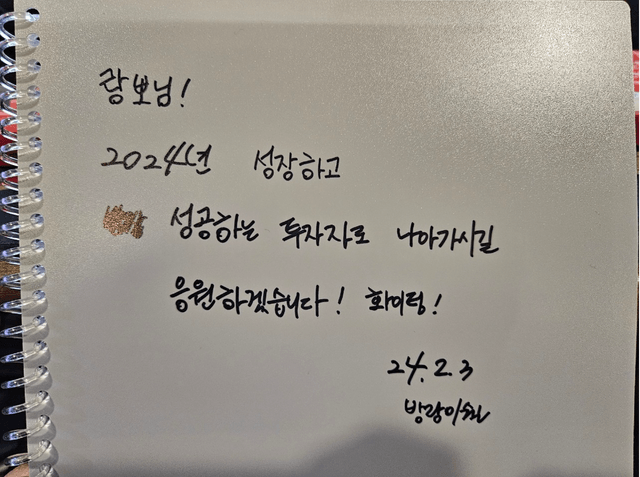 랑뽀님!
2024년 성장하고
성공하는 투자자로 나아가시길
응원하겠습니다! 화이팅!
24.2.3